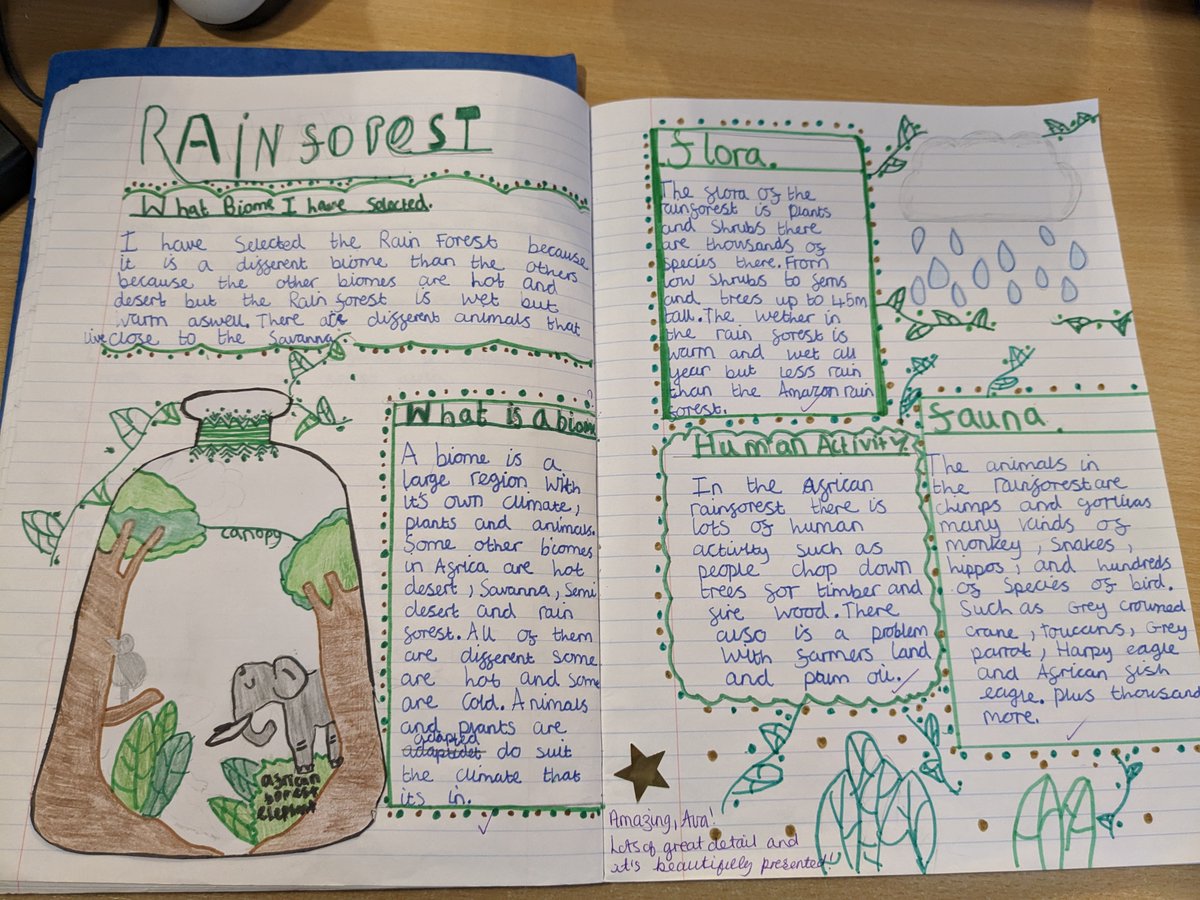 RAinfoResT
What Biome I have Selected.
I have Selected the Rain Forest because
it is a different biome than the others
because the other biomes are hot and
desert but the Rain forest is wet but
warm aswell. There are different animals that
live close to the Savanna
canopy
african
forest
elephant
What is a biome
A biome is a
large region with
it's own climate,
plants and animals.
Some other biomes
in Africa are hot
desert, Savanna, Semi
desert and rain
forest. All of them
are different some
are hot and some
are cold. Animals
and plants are
adapted
adaptidet do suit
the climate that
its in.
flora.
The flora of the
rainforest is plants
and Shrubs there
are thousands of
species there. From
low Shrubs to ferns
and trees up to 45m
tall. The wether in
the rain forest is
warm and wet all
year but less rain
than the Amazon rain
forest.
Human Activity
In the African
rainforest there is
lots of human
activity such as
people chop down
trees for timber and
fire wood. There
also is a problem
with farmers land
and palm oil.
fauna.
The animals in
the rainforest are
chimps and gorillas
many kinds of
monkey, Snakes,
hippos, and hundreds
of Species of bird.
Such as Grey crowned
crane, touccans, Grey
parrot, Harpy eagle
and African fish
eagle. plus thousand
more.
Amazing, Ava!
Lots of great detail and
it's beautifully presented!